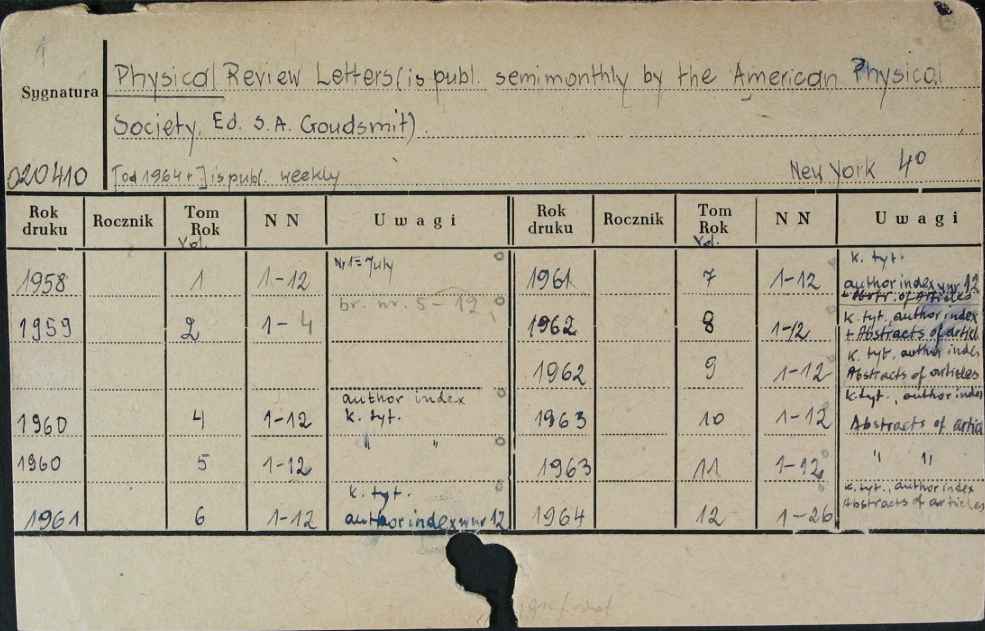 1
Sygnatura
Physical Review Letters (is publ. semimonthly by the American Physical
Society. Ed. S.A. Goudsmit).
020410
[od 1964 r.] is publ. weekly
New York 4°
Rok druku Rocznik Tom Rok Vol. N N Uwagi Rok druku Rocznik Tom Rok Vol. N N Uwagi
1958 1 1-12 Nr 1=July 1961 7 1-12 k. tyt. author index w nr 12 + Abstr. of articles
1959 2 1-4 br. nr. 5-12 1962 8 1-12 k. tyt. author index + Abstracts of articl
1962 9 1-12 k. tyt. author index Abstracts of articles
1960 4 1-12 author index k. tyt. 1963 10 1-12 k. tyt., author index Abstracts of articl
1960 5 1-12 " " 1963 11 1-12 " "
1961 6 1-12 k. tyt. author index w nr 12 1964 12 1-26 k. tyt., author index Abstracts of articles